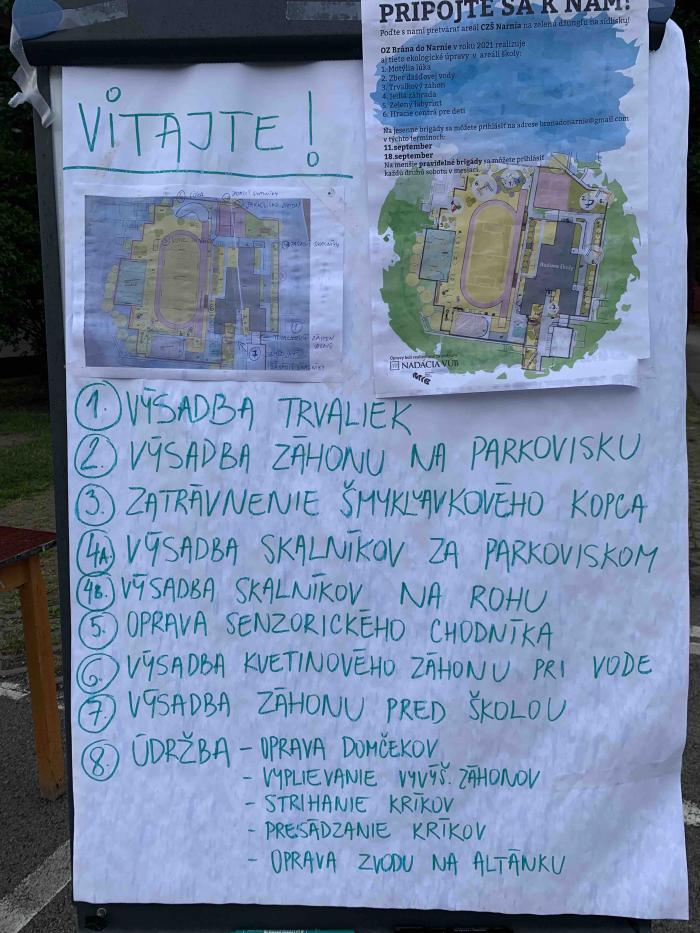 PRIPOJTE SA K NÁM!
Poďte s nami pretvárať areál CZŠ Narnia na zelenú džungľu na sídlisku!
OZ Brána do Narnie v roku 2021 realizuje
aj tieto ekologické úpravy v areáli školy:
1. Motýlia lúka
2. Zber dažďovej vody
3. Trvalkový záhon
4. Jedlá záhrada
5. Zelený labyrint
6. Hracie centrá pre deti
Na jesenné brigády sa môžete prihlásiť na adrese branadonarnie@gmail.com
v týchto termínoch:
11.september
18.september
Na menšie pravidelné brigády sa môžete prihlásiť
každú druhú sobotu v mesiaci
Budova školy
NADÁCIA VÚB
VITAJTE!
LÚKA
7
1. VÝSADBA TRVALIEK
2. VÝSADBA ZÁHONU NA PARKOVISKU
3. ZATRÁVNENIE ŠMYKĽAVKOVÉHO KOPCA
4A. VÝSADBA SKALNÍKOV ZA PARKOVISKOM
4B. VÝSADBA SKALNÍKOV NA ROHU
5. OPRAVA SENZORICKÉHO CHODNÍKA
6. VÝSADBA KVETINOVÉHO ZÁHONU PRI VODE
7. VÝSADBA ZÁHONU PRED ŠKOLOU
8. ÚDRŽBA - OPRAVA DOMČEKOV
- VYPLIEVANIE VYVÝŠ. ZÁHONOV
- STRIHANIE KRÍKOV
- PRESÁDZANIE KRÍKOV
- OPRAVA ZVODU NA ALTÁNKU